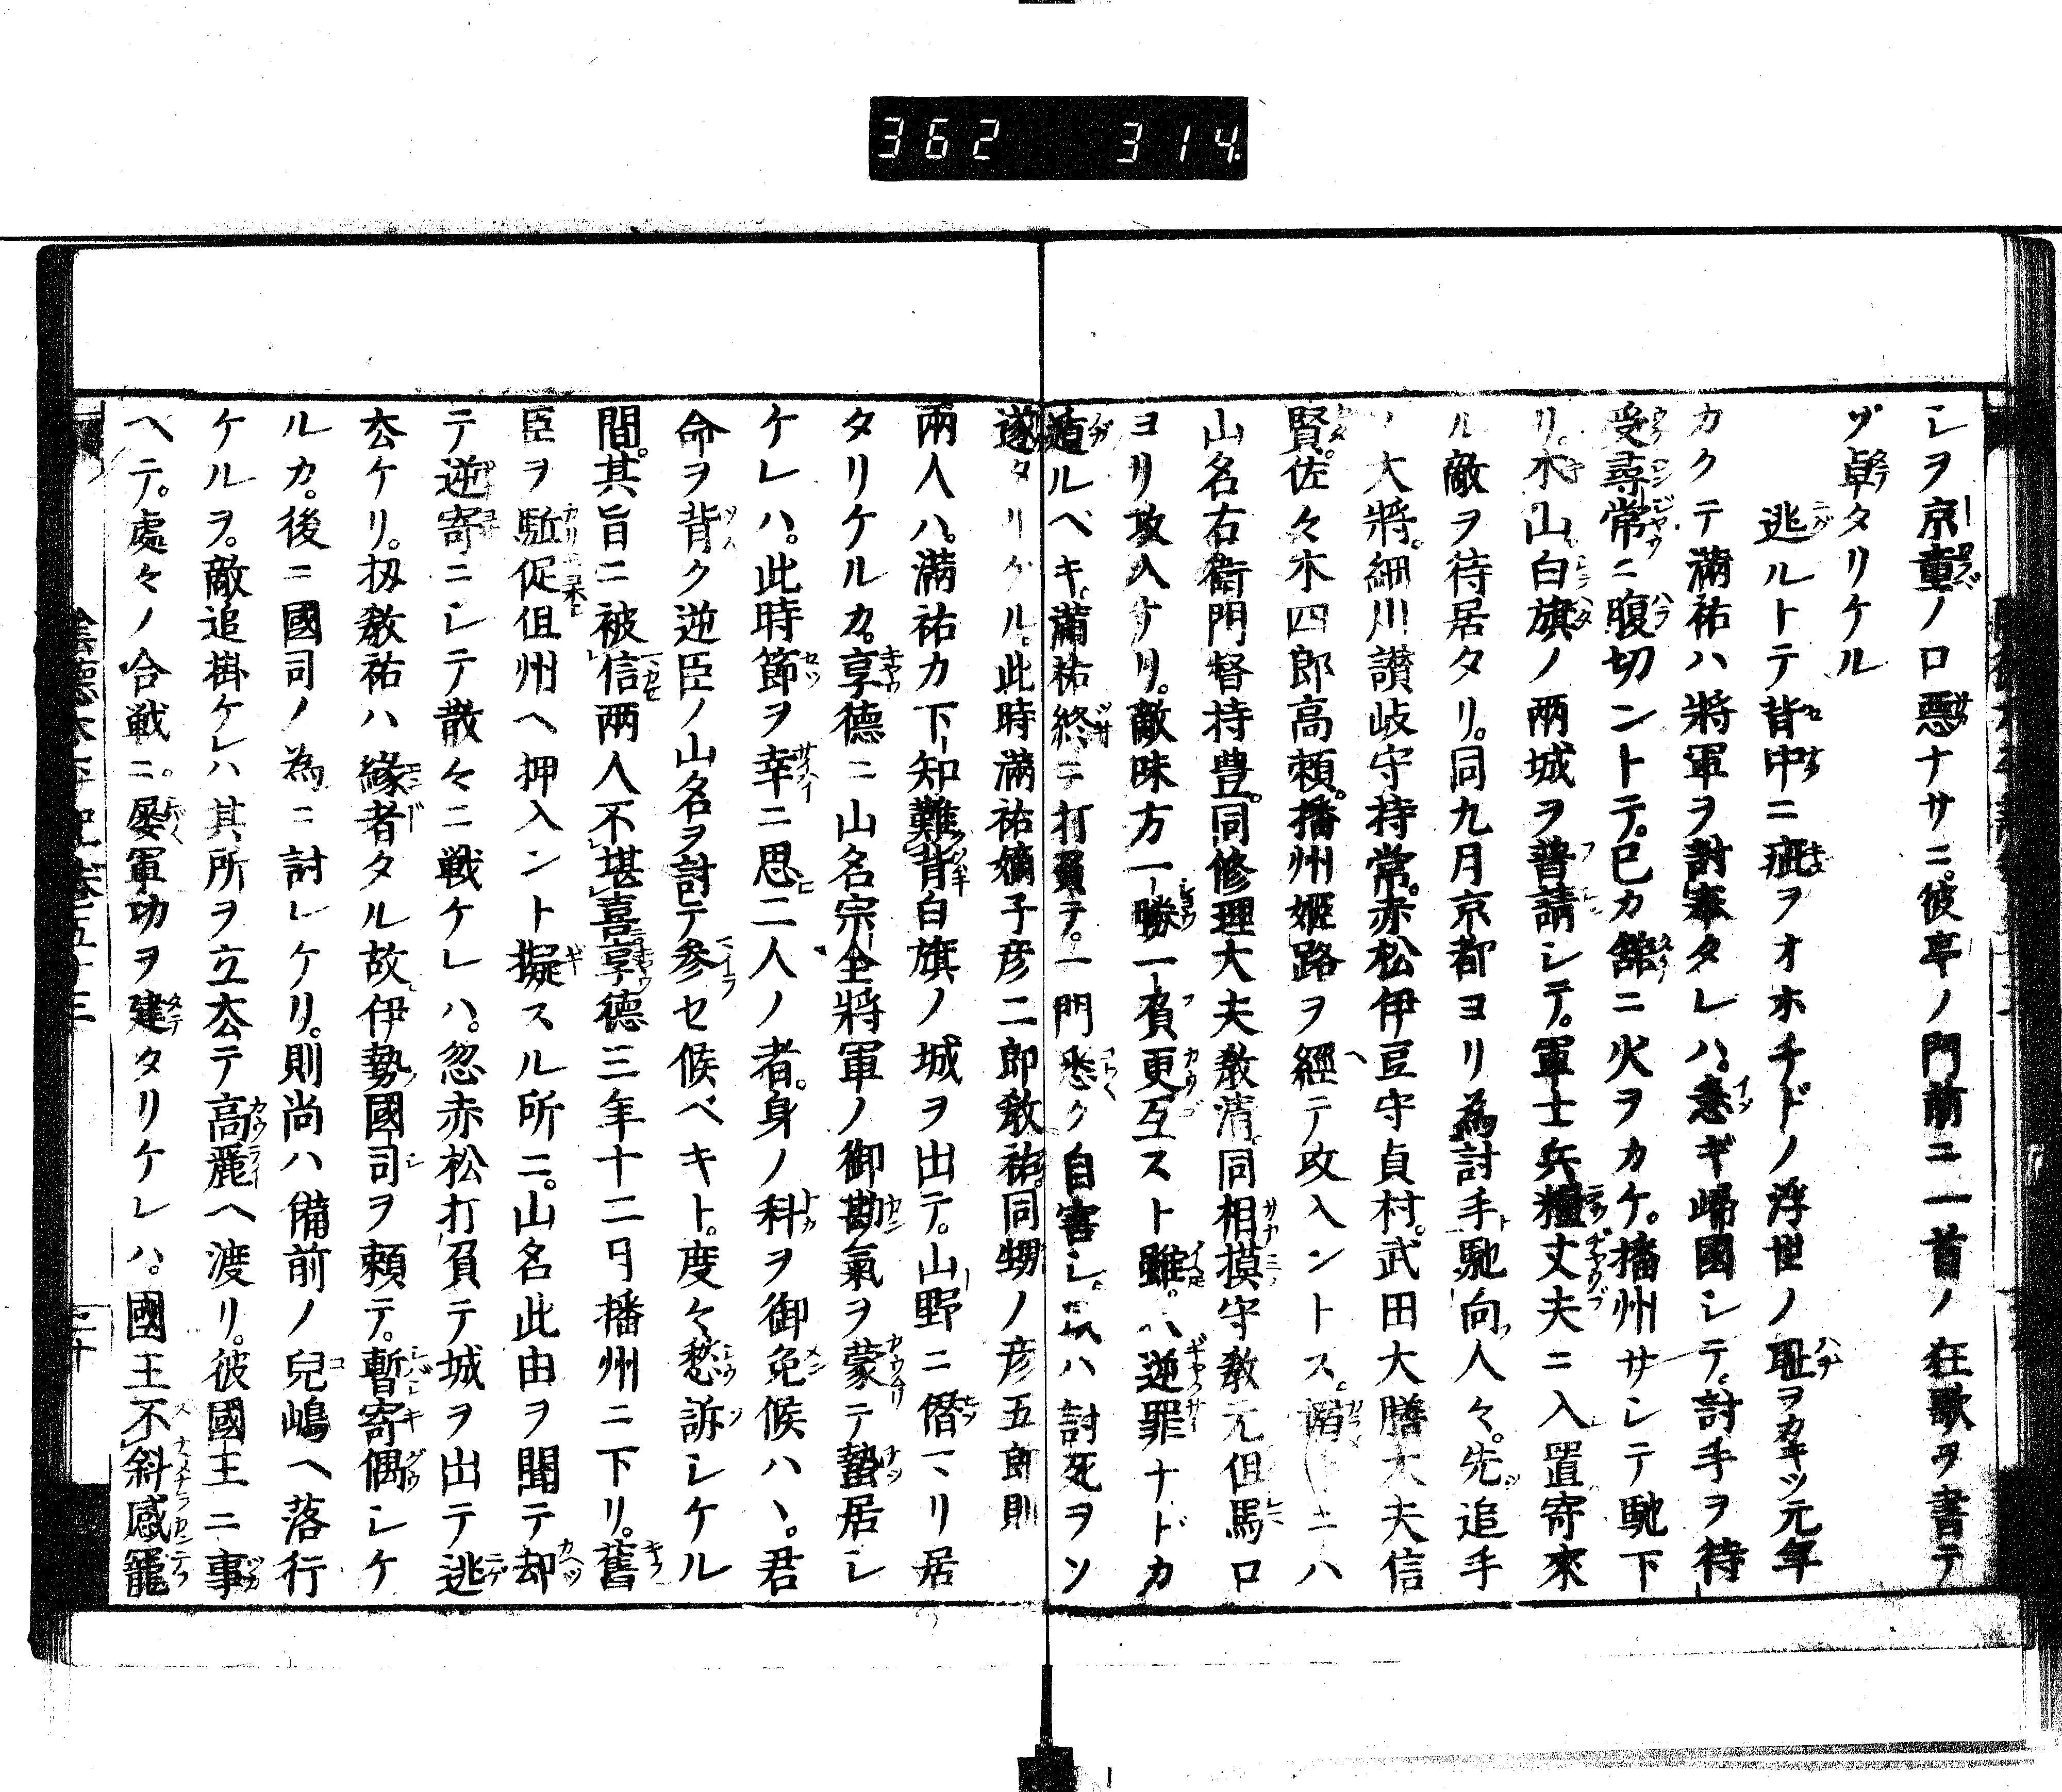 362 314.
シヲ京童ノ口悪ナサニ。彼亭ノ門前ニ一首ノ狂歌ヲ書テ
ゾ卓タリケル
逃ルトテ背中ニ疵ヲオホチドノ浮世ノ耻ヲカキツ元年
カクテ満祐ハ將軍ヲ討奉タレハ。急ギ歸國シテ。討手ヲ待
受尋常ニ腹切ントテ。已カ舘ニ火ヲカケ。播州サシテ馳下
リ。木山白旗ノ兩城ヲ普請シテ。軍士兵糧丈夫ニ入置寄來
ル敵ヲ待居タリ。同九月京都ヨリ為討手馳向人々。先追手
ノ大將。細川讃岐守持常。赤松伊豆守貞村。武田大膳大夫信
賢。佐々木四郎高頼。播州姫路ヲ經テ攻入ントス。搦ニハ
山名右衛門督持豊。同修理大夫教清。同相摸守教元但馬口
ヨリ攻入ケリ。敵味方一勝一負更互スト雖。ハ逆罪ナドカ
遁ルベキ。満祐終ニ打負テ。一門悉ク自害シ。又ハ討死ヲソ
遂タリケル。此時満祐嫡子彦二郎教祐。同甥ノ彦五郎則
兩人ハ。満祐カ下知難背白旗ノ城ヲ出テ。山野ニ僭ヽリ居
タリケルカ。享德ニ山名宗全將軍ノ御勘氣ヲ蒙テ蟄居シ
ケレハ。此時節ヲ幸ニ思二人ノ者。身ノ科ヲ御免候ハヽ。君
命ヲ背ク逆臣ノ山名ヲ討テ参セ候ベキト。度々愁訴シケル
間。其旨ニ被信兩人不堪喜享德三年十二月播州ニ下リ。舊
臣ヲ駈促但州ヘ押入ント擬スル所ニ。山名此由ヲ聞テ却
テ逆寄ニシテ散々ニ戦ケレハ。忽赤松打負テ城ヲ出テ逃
厺ケリ。扨教祐ハ縁者タル故伊勢國司ヲ頼テ。暫寄偶シケ
ルカ。後ニ國司ノ為ニ討レケリ。則尚ハ備前ノ兒嶋ヘ落行
ケルヲ。敵追掛ケレハ其所ヲ立厺テ高麗ヘ渡リ。彼國王ニ事
ヘテ。處々ノ合戦ニ。屡軍功ヲ建タリケレハ。國王不斜感寵